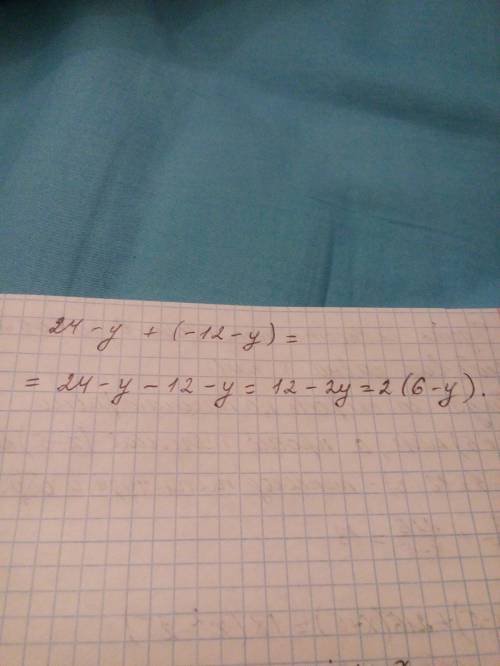 24 - y + (-12 - y) =
= 24 - y - 12 - y = 12 - 2y = 2 (6 - y).